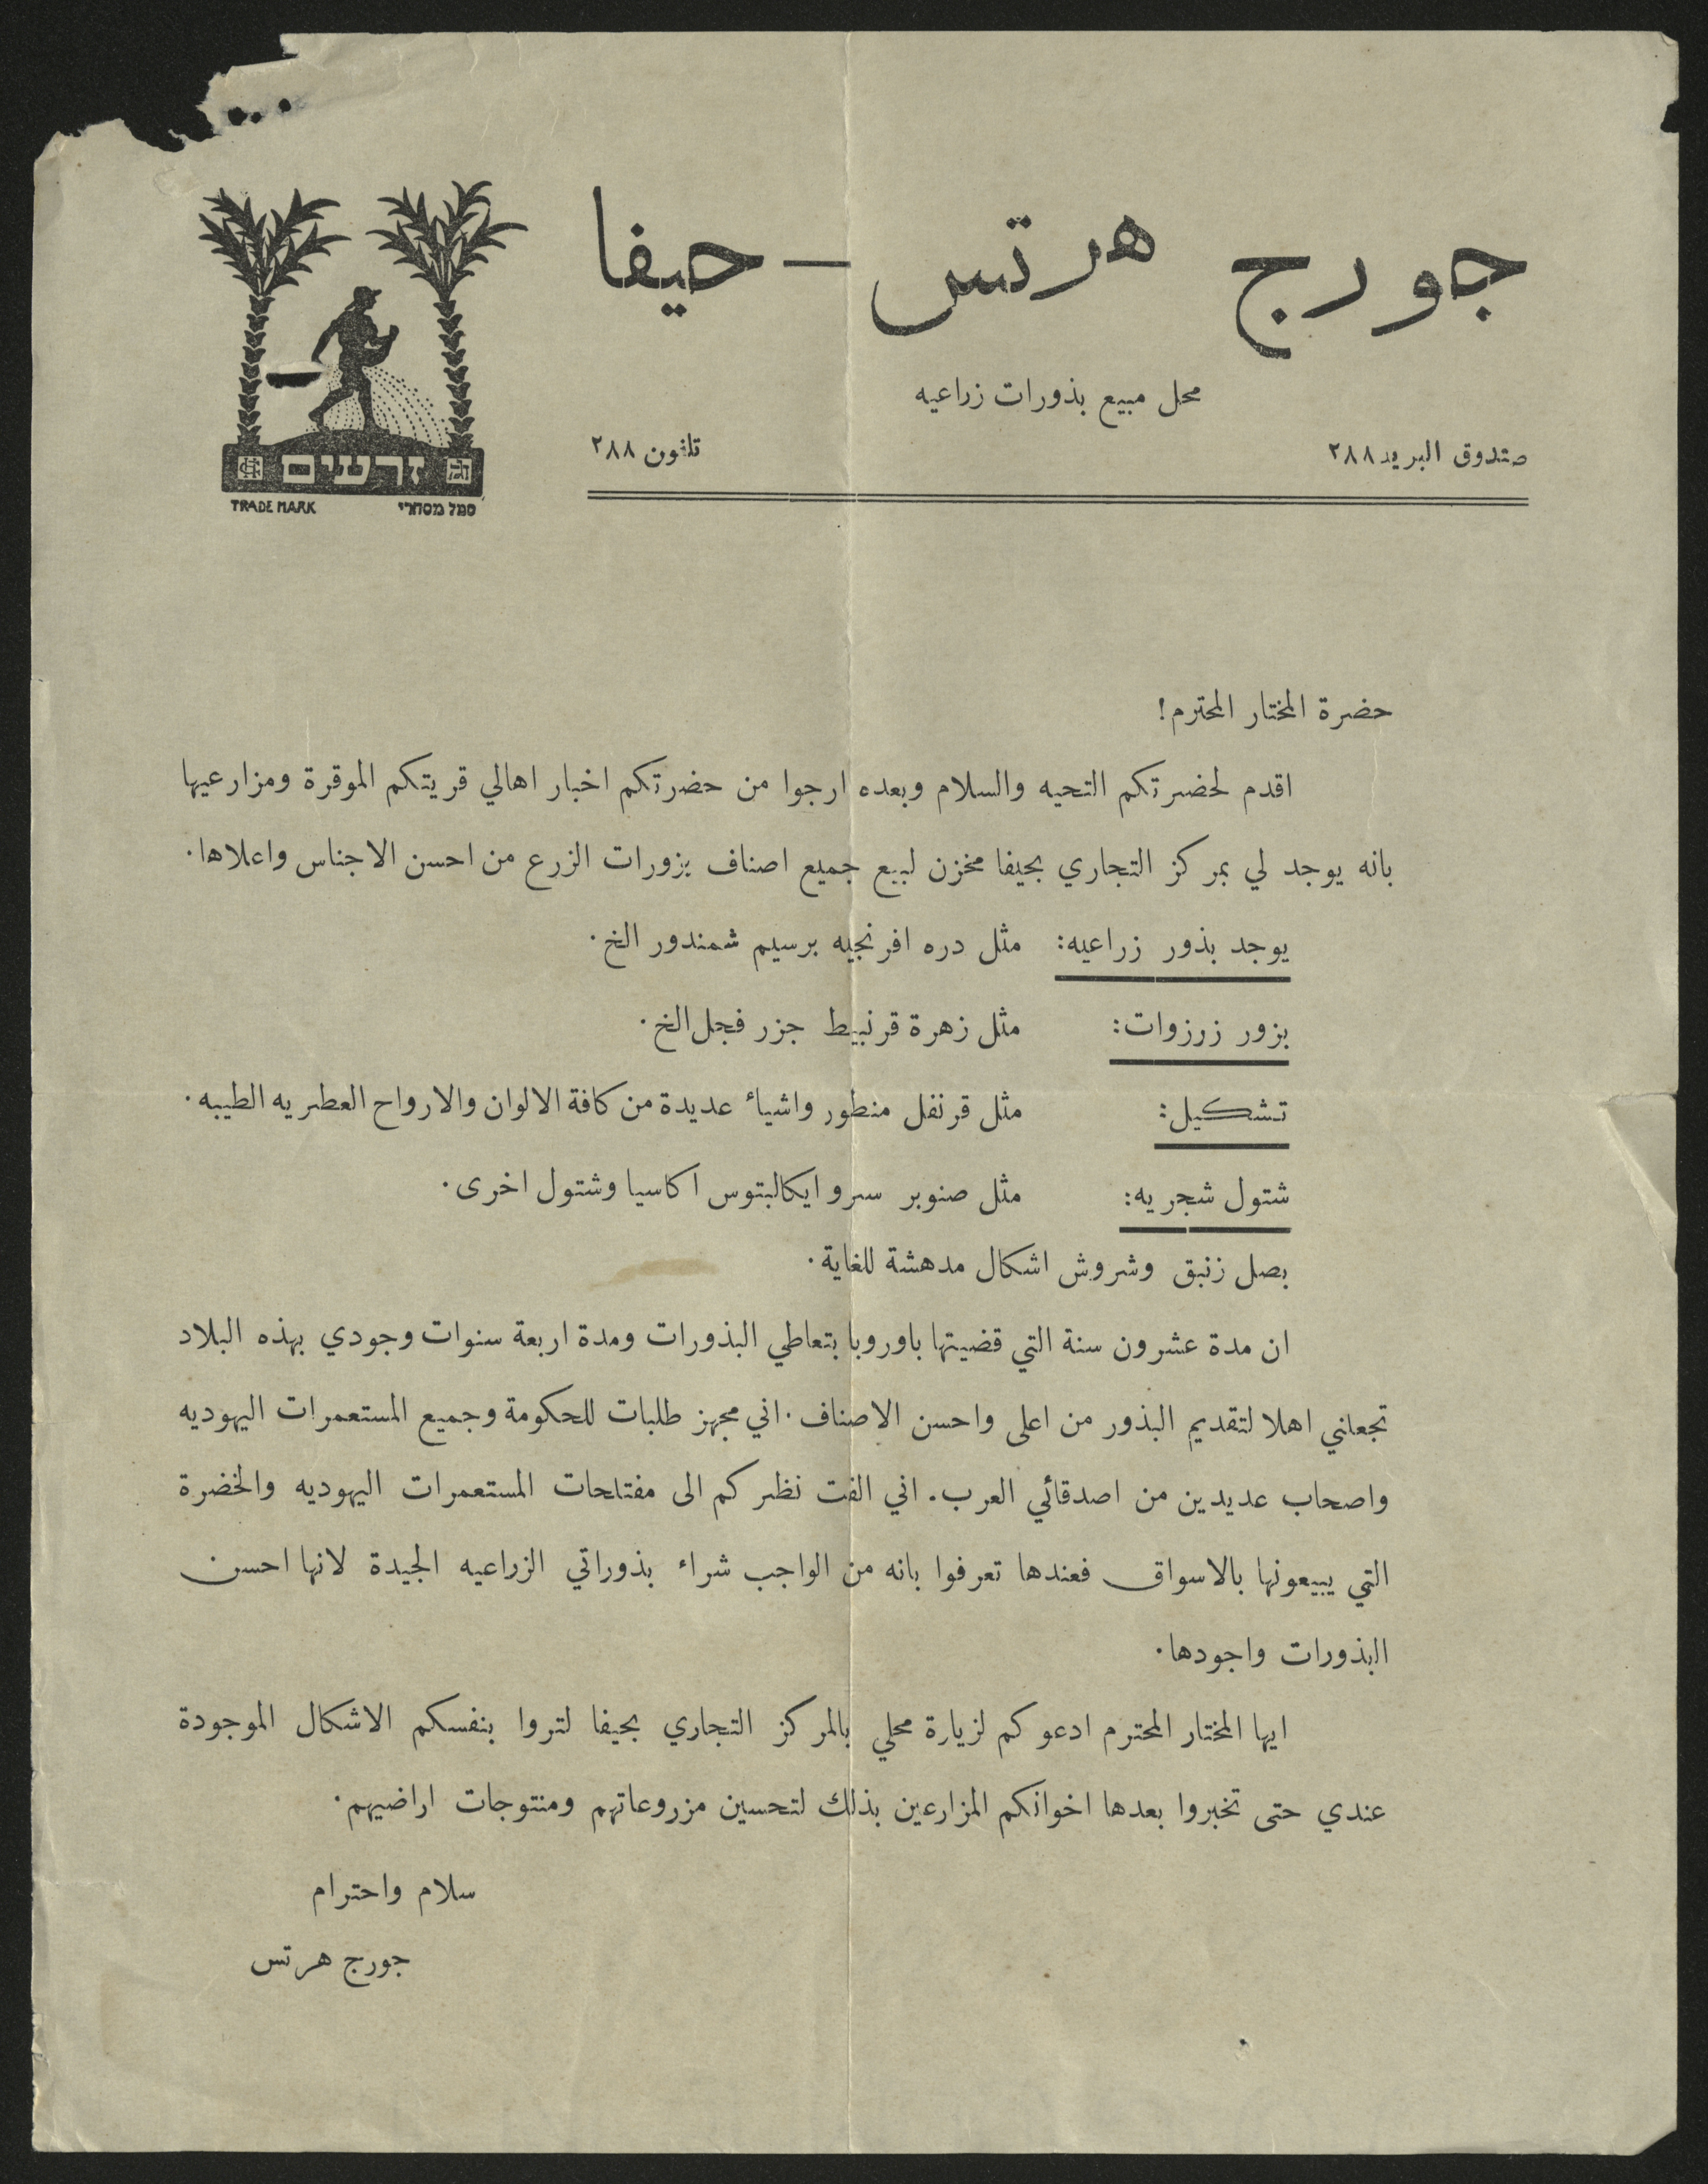 جورج هرتس – حيفا
محل مبيع بذورات زراعيه
صندوق البريد ٢٨٨ تلفون ٢٨٨
זרעים
TRADE MARK סמל מסחרי
حضرة المختار المحترم!
اقدم لحضرتكم التحيه والسلام وبعده ارجوا من حضرتكم اخبار اهالي قريتكم الموقرة ومزارعيها
بانه يوجد لي بمركز التجاري بحيفا مخزن لبيع جميع اصناف بزورات الزرع من احسن الاجناس واعلاها.
يوجد بذور زراعيه: مثل دره افرنجيه برسيم شمندور الخ.
بزور زرزوات: مثل زهرة قرنبيط جزر فجل الخ.
تشكيل: مثل قرنفل منطور واشياء عديدة من كافة الالوان والارواح العطريه الطيبه.
شتول شجريه: مثل صنوبر سرو ايكالبتوس اكاسيا وشتول اخرى.
بصل زنبق وشروش اشكال مدهشة للغاية.
ان مدة عشرون سنة التي قضيتها باوروبا بتعاطي البذورات ومدة اربعة سنوات وجودي بهذه البلاد
تجعلني اهلا لتقديم البذور من اعلى واحسن الاصناف. اني مجهز طلبات للحكومة وجميع المستعمرات اليهوديه
واصحاب عديدين من اصدقائي العرب. اني الفت نظركم الى مفتلحات المستعمرات اليهوديه والخضرة
التي يبيعونها بالاسواق فعندها تعرفوا بانه من الواجب شراء بذوراتي الزراعيه الجيدة لانها احسن
البذورات واجودها.
ايها المختار المحترم ادعوكم لزيارة محلي بالمركز التجاري بحيفا لتروا بنفسكم الاشكال الموجودة
عندي حتى تخبروا بعدها اخوانكم المزارعين بذلك لتحسين مزروعاتهم ومنتوجات اراضيهم.
سلام واحترام
جورج هرتس